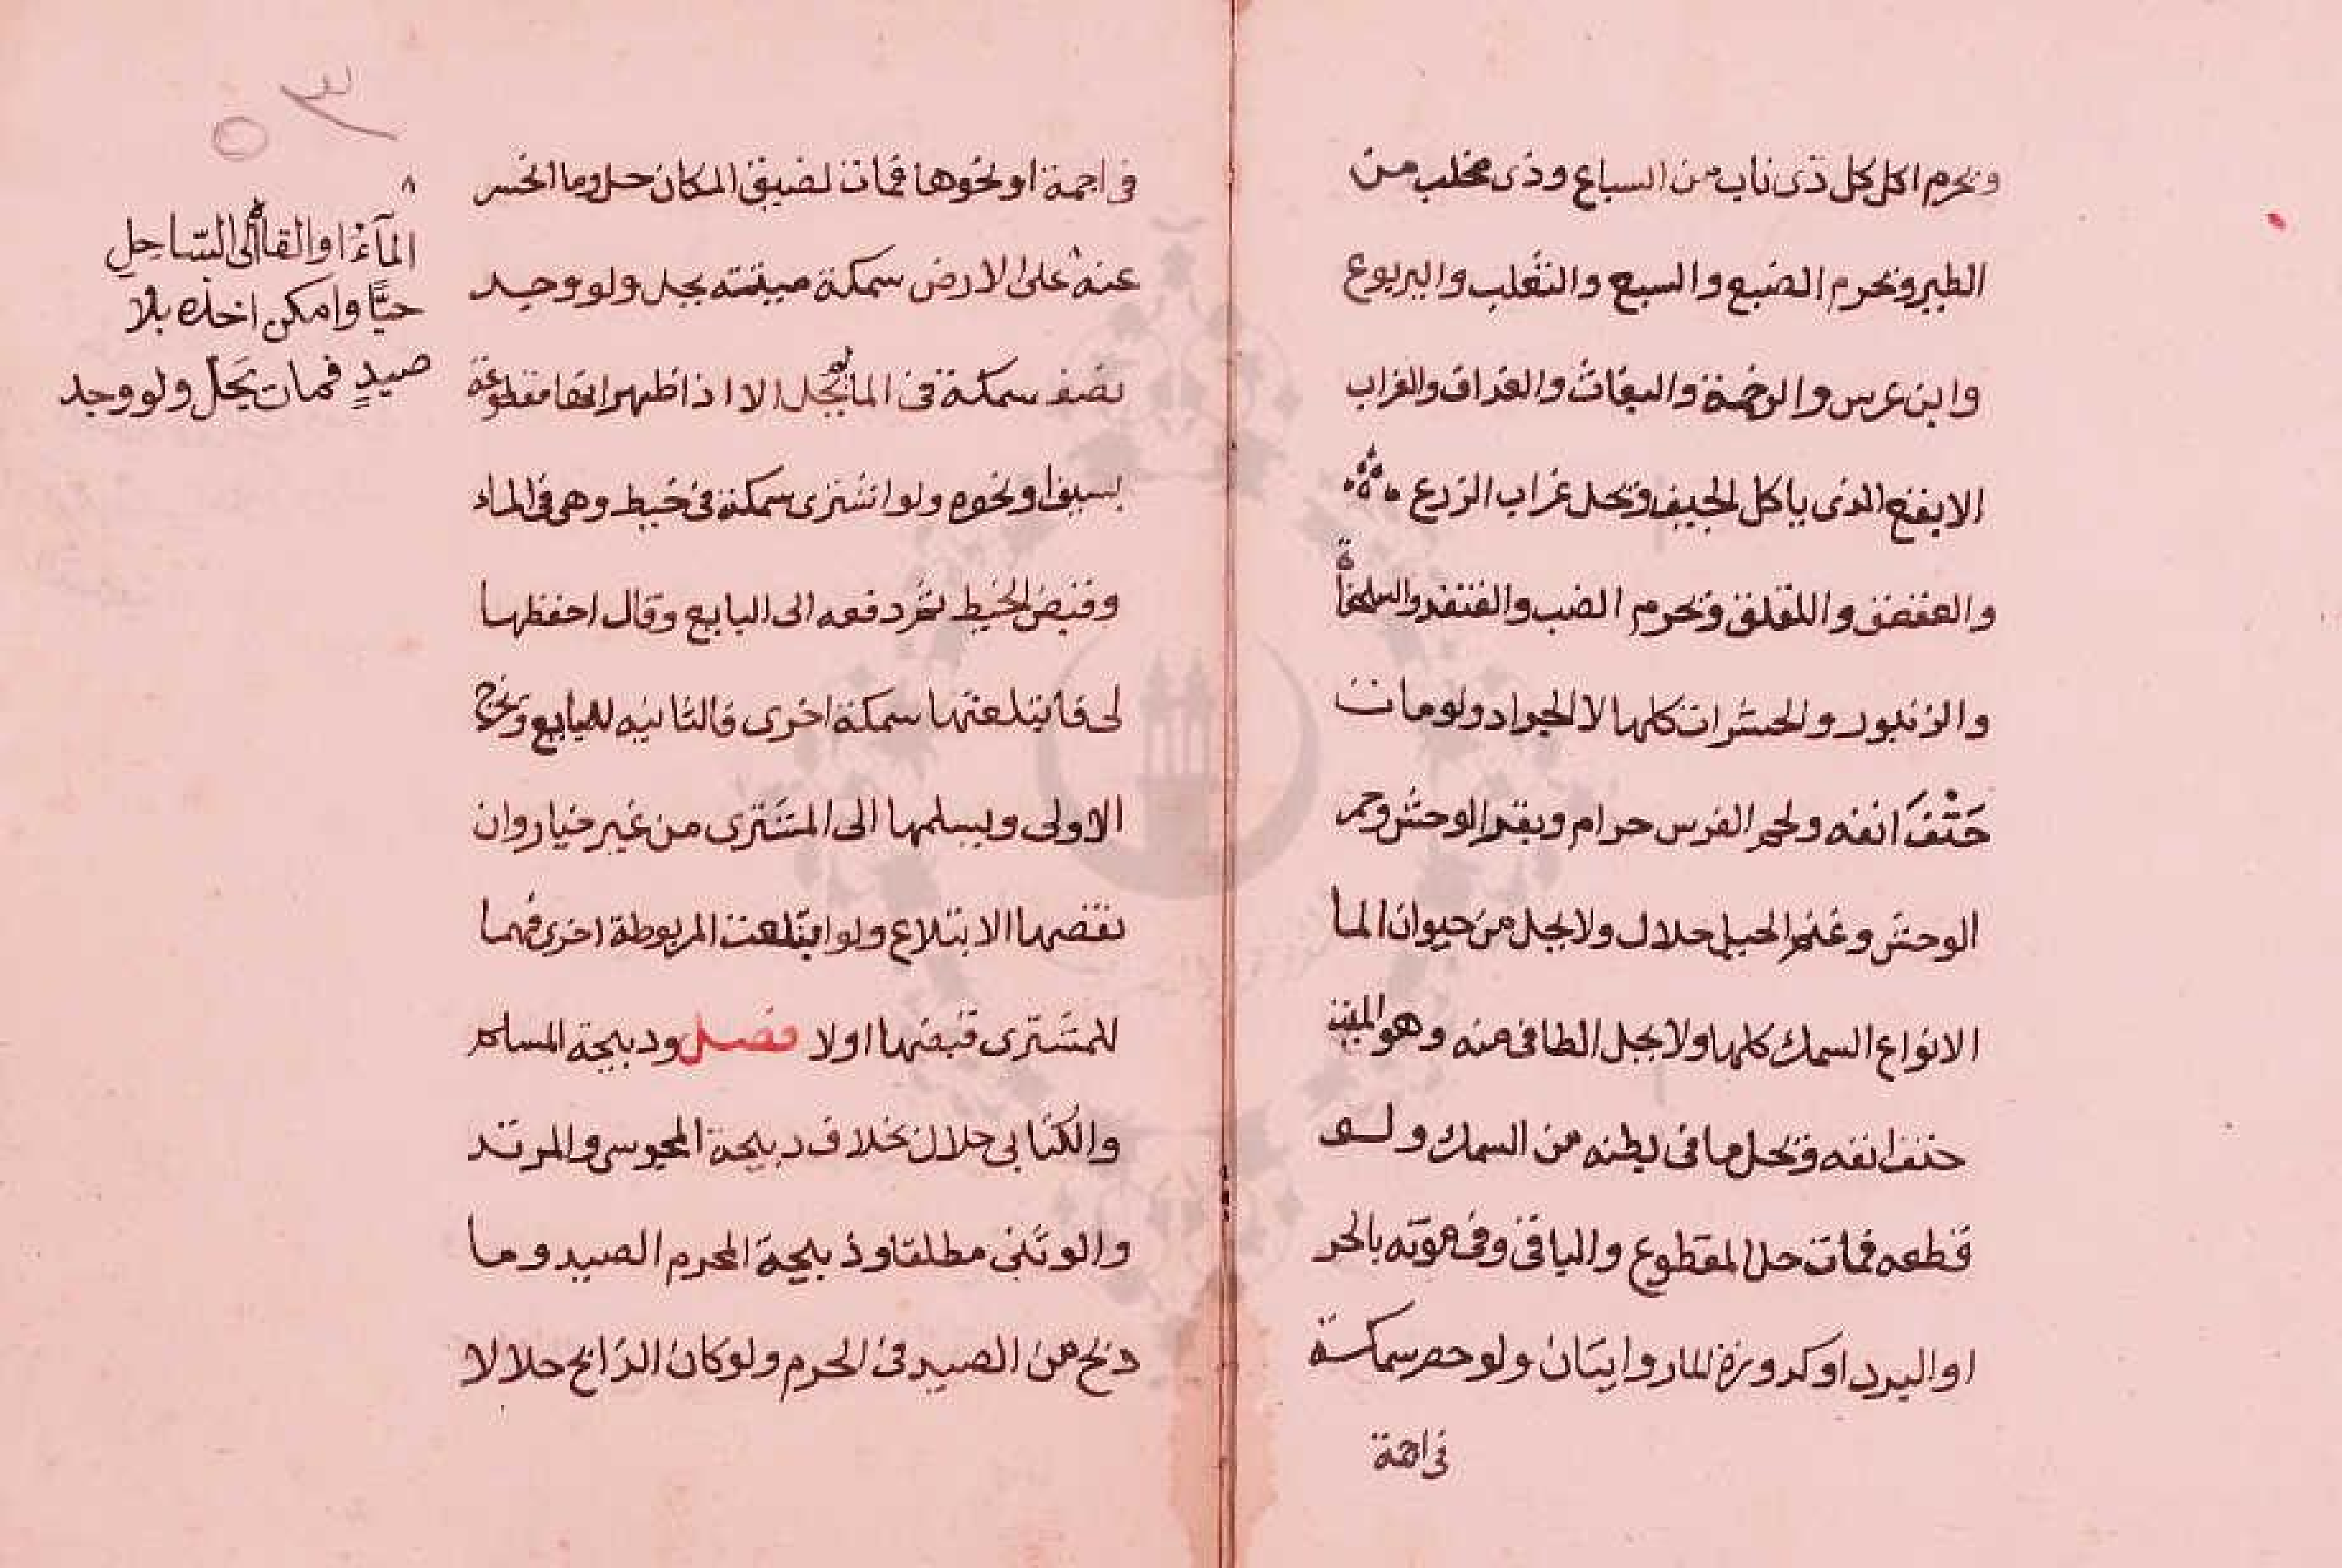 ويحرم اكل كل ذى ناب من السباع وذى مخلب من
الطير ويحرم الضبع والسبع والثعلب واليربوع
وابن عرس والرخمة والبغاث والغداف والغراب
الابقع الذى ياكل الجيف ويحل غراب الزرع
والعقعق واللقلق ويحرم الضب والقنفد والسلحفاة
والزنبور والحشرات كلها الا الجراد ولو مات
حَتْفَ انفه ولحم الفرس حرام وبقر الوحش وحمر
الوحش وغنم الجبل حلال ولا يحل من حيوان الما
الا نواع السمك كلها ولا يحل الطافى منه وهو الميت
حتف انفه ويحل ما فى بطنه من السمك ولو
قطعه فمات حل المقطوع والباقى وفى موته بالحر
او البرد او كدورة الما روايتان ولو حصر سمكة
فى اجمة
فى اجمة او نحوها فمات لضيق المكان حل وما انحسر
عنه على الارض سمكة ميتة يحل ولو وجد
نصف سمكة فى الما يحل الا اذا ظهر انها مقطوعة
بسيف او نحوه ولو اشترى سمكة فى خيط وهى فى الماء
وقبض الخيط ثم دفعه الى البايع وقال احفظها
لى فابتلعتها سمكة اخرى فالثانيه للبايع ويخرج
الاولى ويسلمها الى المشترى من غير خيار وان
نقصها الابتلاع ولو ابتلعت المربوطة اخرى فهما
للمشترى قبضها اولا فصل ودبيحة المسلم
والكتابى حلال بخلاف دبيحة المجوسى والمرتد
والوثنى مطلقا وذبيحة المحرم الصيد وما
دبح من الصيد فى الحرم ولو كان الذابح حلالا
٥٣
المآءُ او القاه الى السّاحل
حيًّا وامكن اخذه بلا
صيدٍ فمات يَحَلّ ولو وجد